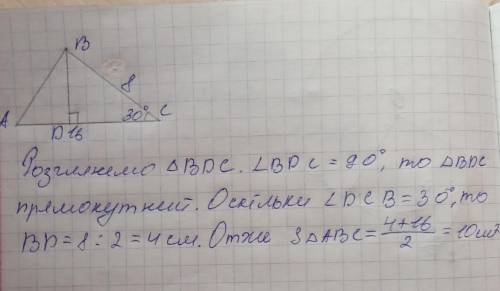 B
8
A
D 16
30°
C
Розглянемо △BDC. ∠BDC = 90°, то △BDC
прямокутний. Оскільки ∠DCB = 30°, то
BD = 8 : 2 = 4 см. Отже S△ABC = (4+16)/2 = 10 см²